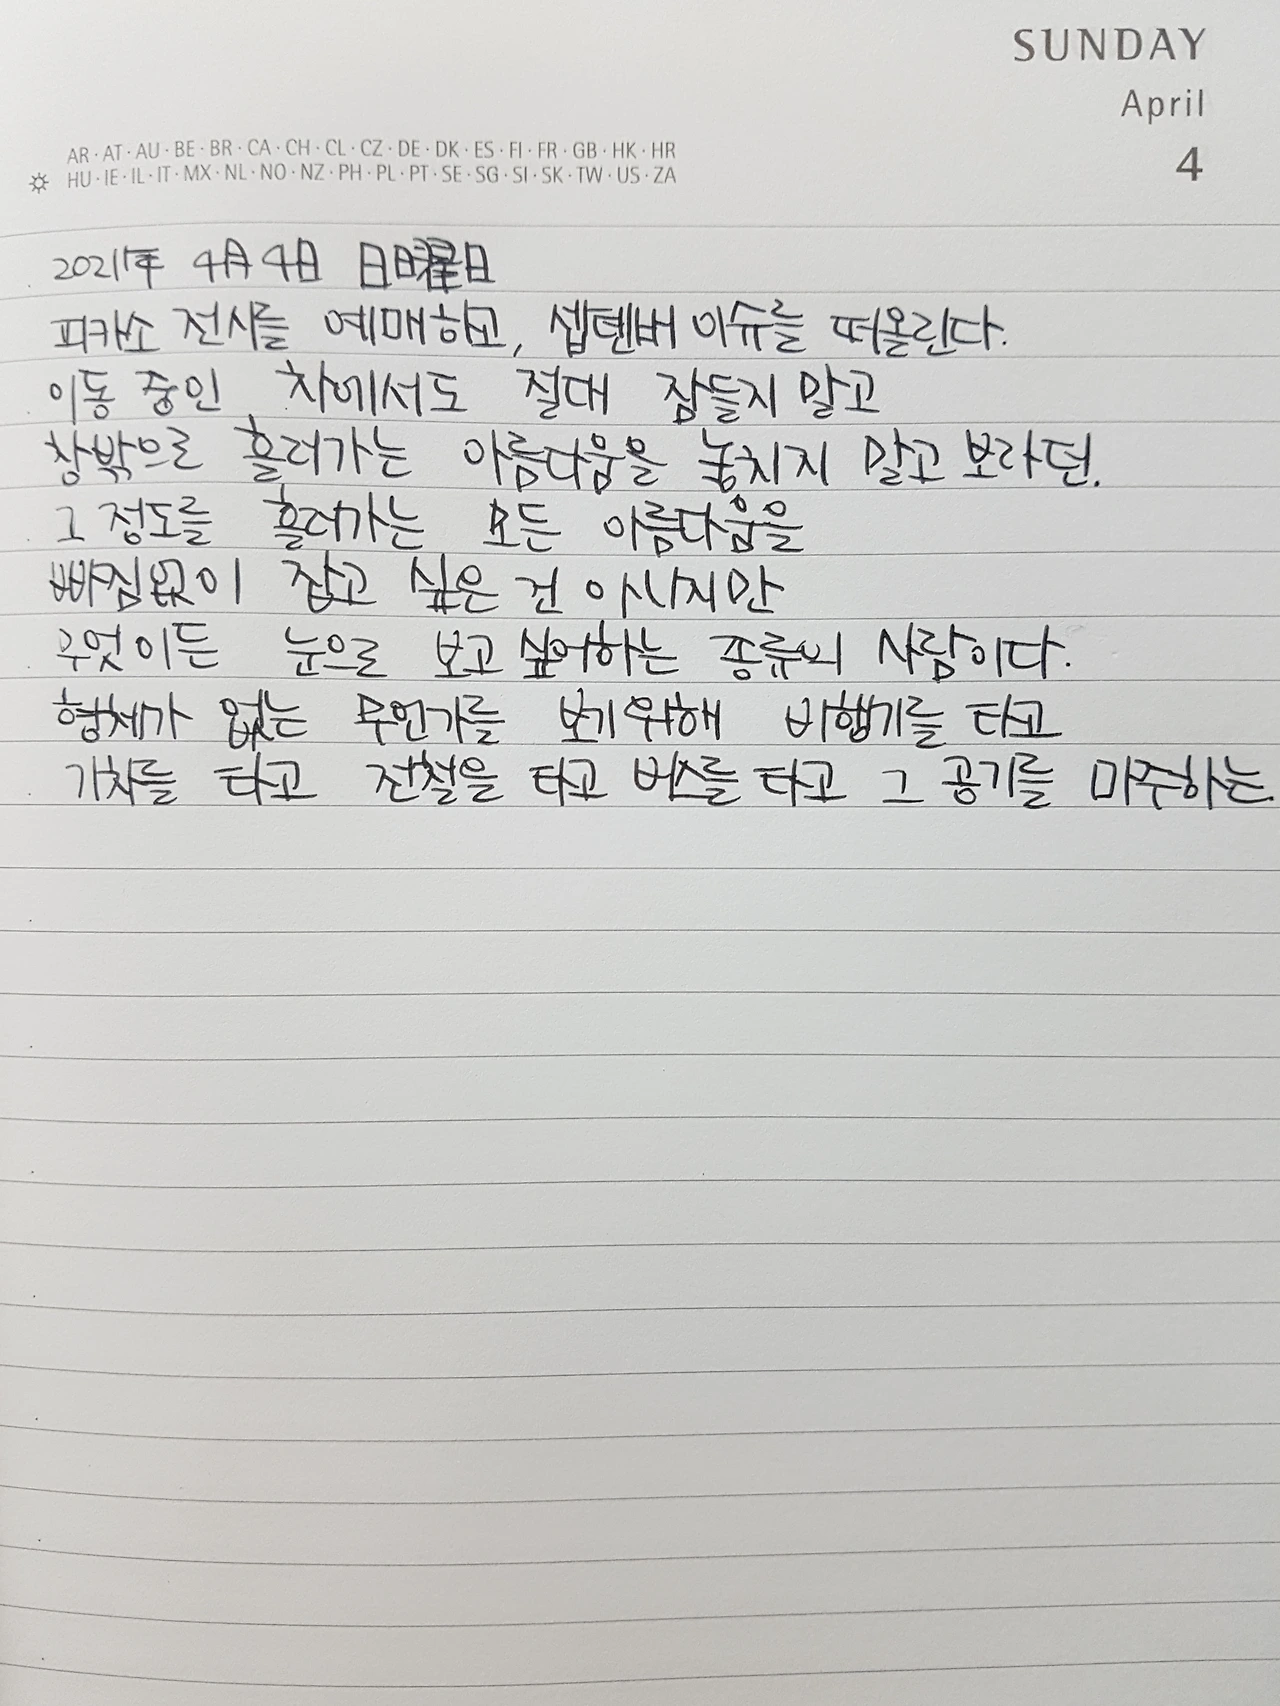 SUNDAY
April
4
AR · AT · AU · BE · BR · CA · CH · CL · CZ · DE · DK · ES · FI · FR · GB · HK · HR
HU · IE · IL · IT · MX · NL · NO · NZ · PH · PL · PT · SE · SG · SI · SK · TW · US · ZA
2021年 4月 4日 日曜日
피카소 전시를 예매하고, 셉텐버 이슈를 떠올린다.
이동 중인 차에서도 절대 잠들지 말고
창밖으로 흘러가는 아름다움을 놓치지 말고 보라던.
그 정도를 흘러가는 모든 아름다움을
빠짐없이 잡고 싶은 건 아니지만
무엇이든 눈으로 보고 싶어하는 종류의 사람이다.
형체가 없는 무언가를 보기위해 비행기를 타고
기차를 타고 전철을 타고 버스를 타고 그 공기를 마주하는.